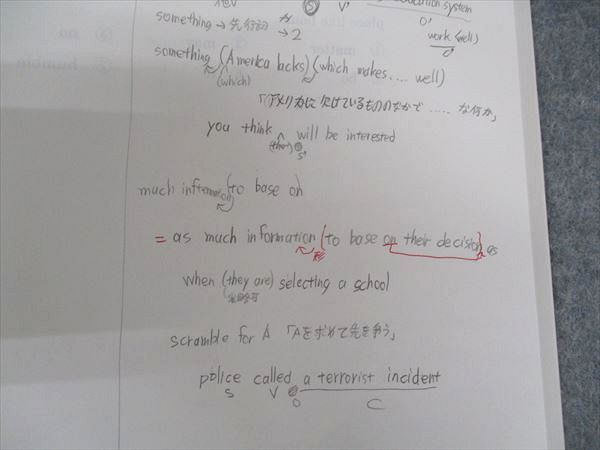 education system
V O V' O'
something → 先行詞 → 2
work (well)
something (America lacks) (which makes .... well)
(which)
「アメリカに欠けているもののなかで ..... な何か」
you think ^ will be interested
(that) S'
much information (to base on)
= as much information (to base on their decision) as
形
when (they are) selecting a school
省略可
scramble for A 「Aを求めて先を争う」
police called a terrorist incident
S V O C